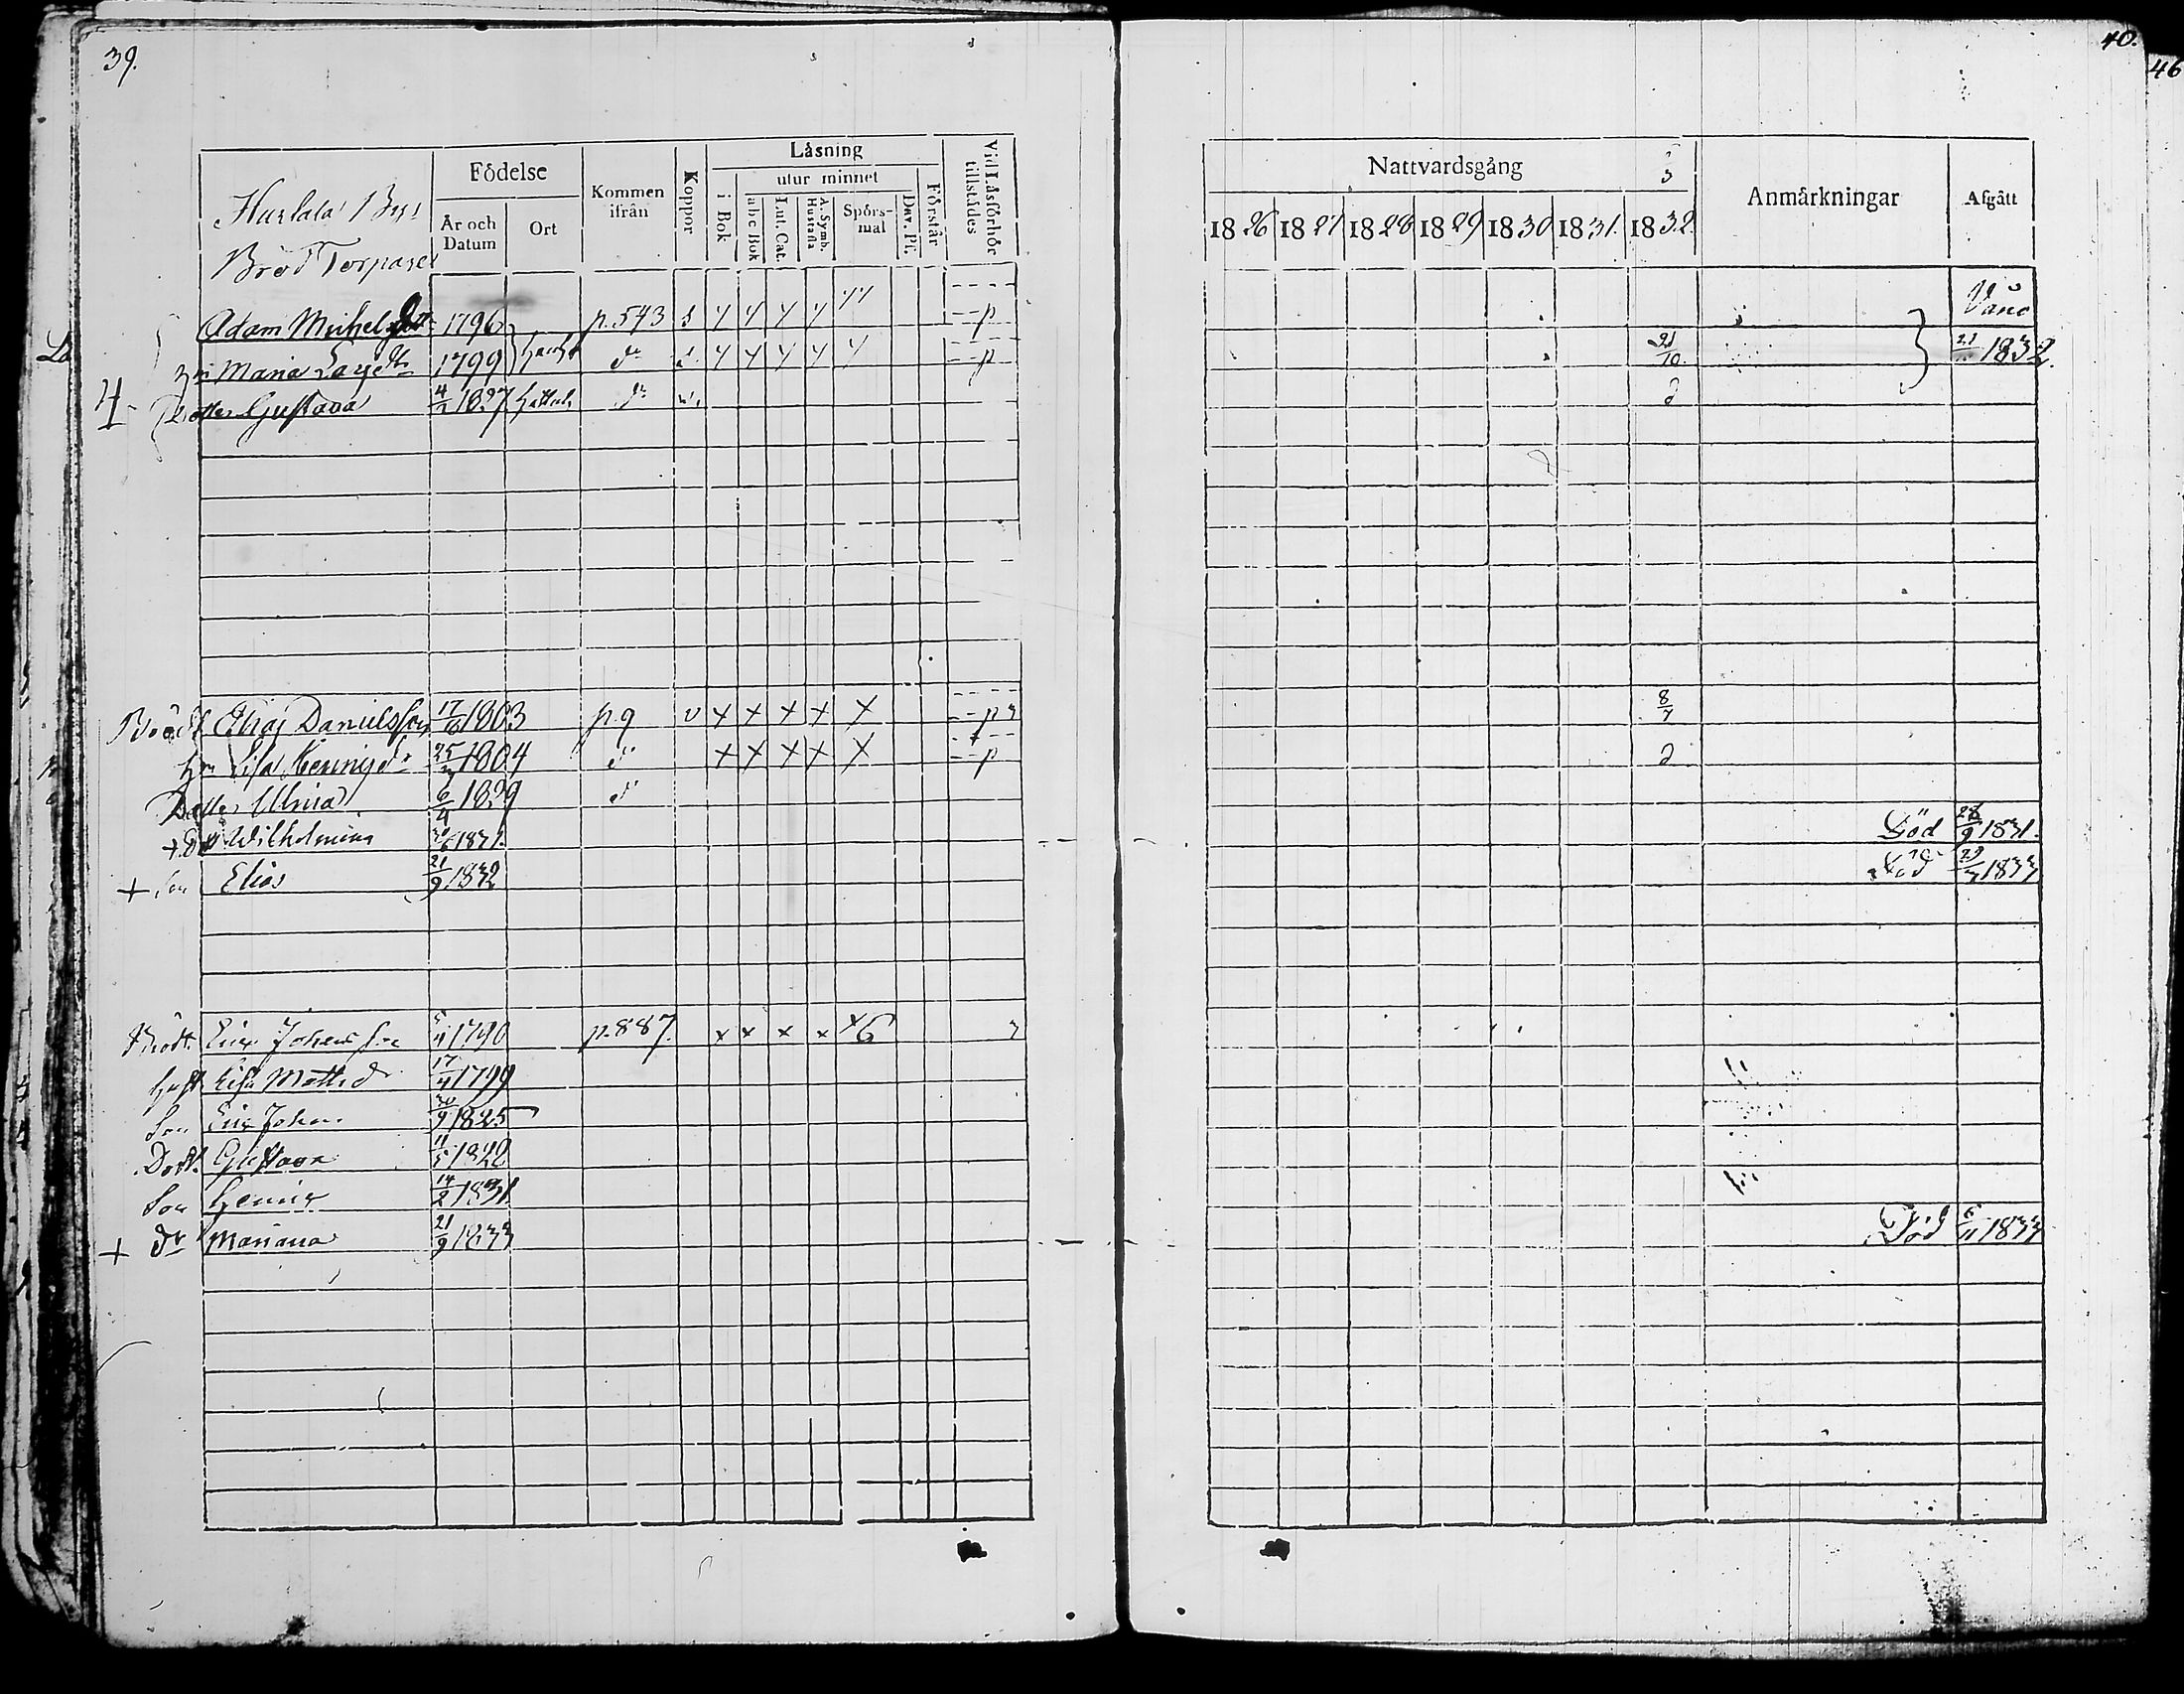 39.
Bys
Brod Torpare
Födelse
År och Datum
Ort
Kommen ifrån
Koppor
Läsning
i Bok
utur minnet
abc Bok
Lut. Cat.
A. Symb. Hustafla
Spörsmål
Dav. Ps.
Förstår
Vid Läsförhör tillstådes
Adam Michels 1796 p. 573 s
Maria 1799 dr
4 Dotter Gustava 4/2 1827 dr
Elias Danielsson 17/6 1803 p. 9 v x x x x x p
hu Lisa Heningsdr 25/3 1804 x x x x x p
Dotter Ulrica 6/4 1829
+ Dr Wilhelmina 1831.
+ Son Elias 21/9 1832
Brodt. Eric Johansson 5/4 1790 p. 887. x x x x x 6
hust Lisa Mattsd 17/4 1799
Son Eric Johan 30/9 1825
Dott. Gustava 11/5 1828
Son Henric 14/2 1831
+ dr Mariana 21/9 1833
40.
46
Nattvardsgång
1826 1827 1828 1829 1830 1831. 1832
Anmärkningar
Afgått
21/10. 21 1832.
8/7
Död 28/9 1831.
Död 29/7 1833
Död 5/11 1833